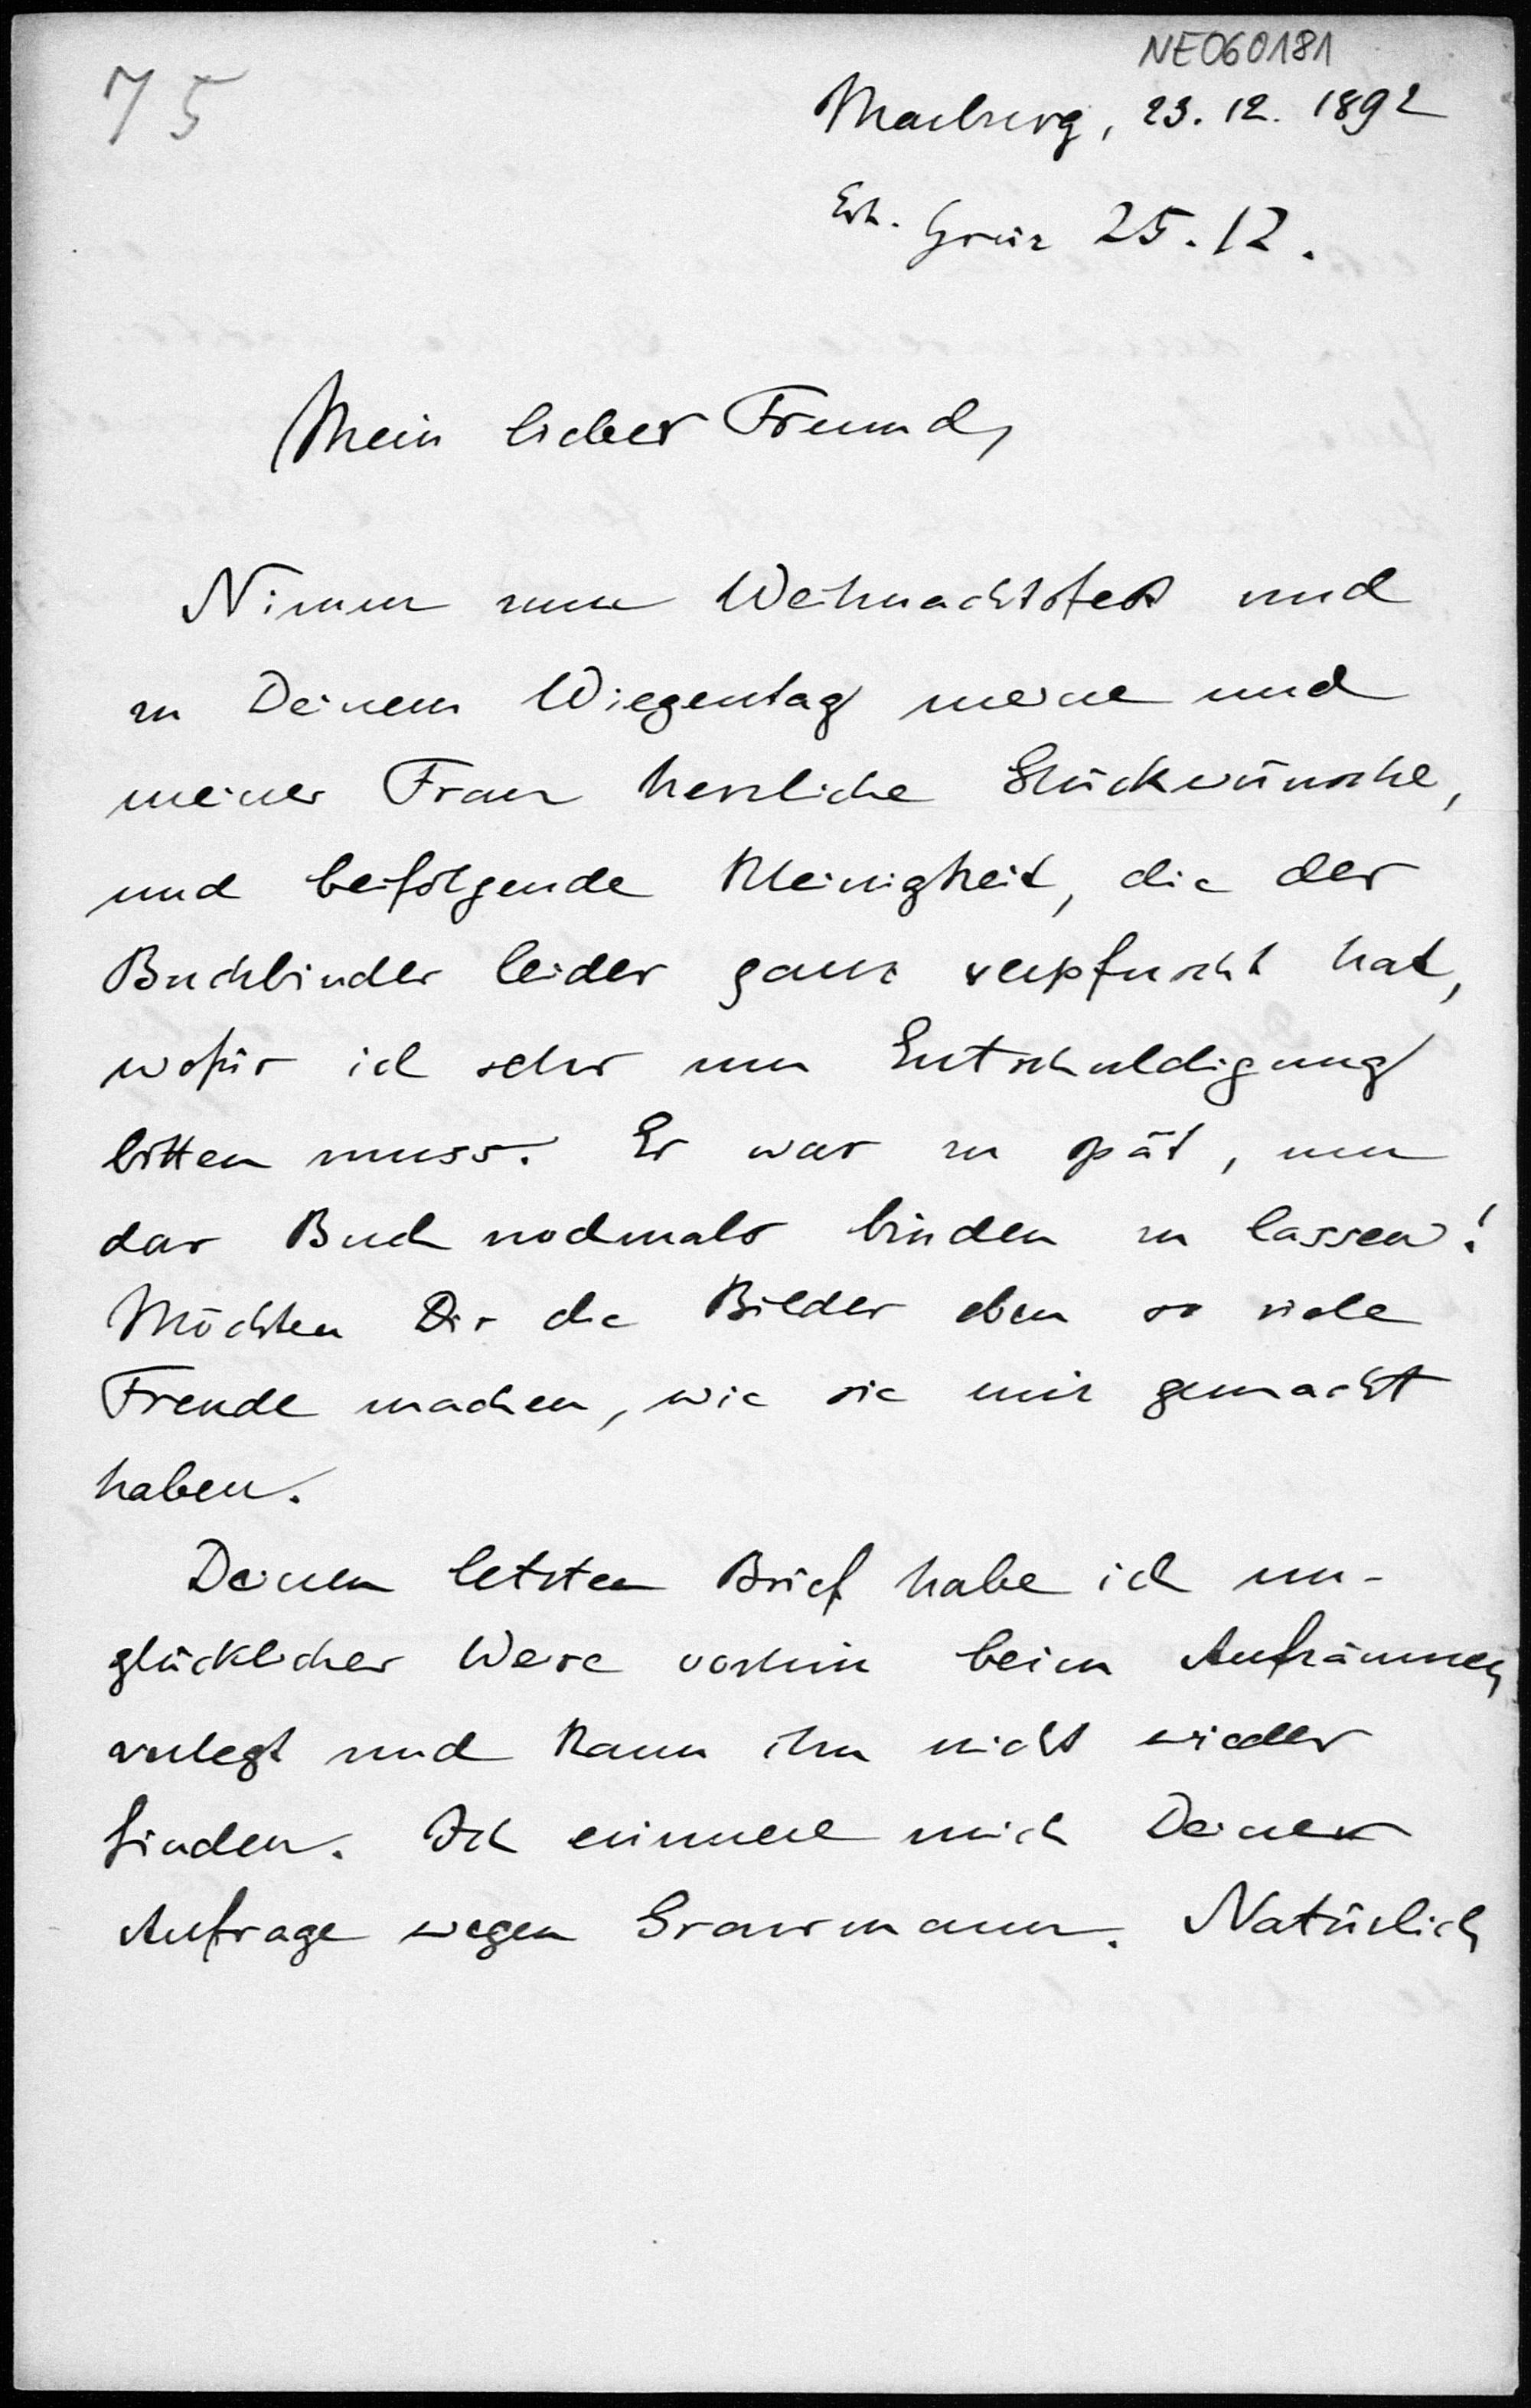 NE060181
75
Marburg, 23. 12. 1892
Erh. Graz 25. 12.
Mein lieber Freund,
Nimm zum Weihnachtsfest und
zu Deinem Wiegentag meine und
meiner Frau herzliche Glückwünsche,
und beifolgende Kleinigkeit, die der
Buchbinder leider ganz verpfuscht hat,
wofür ich sehr um Entschuldigung
bitten muss. Es war zu spät, um
das Buch nochmals binden zu lassen!
Möchten Dir die Bilder eben so viele
Freude machen, wie sie mir gemacht
haben.
Deinen letzten Brief habe ich un-
glücklicher Weise vorhin beim Aufräumen
verlegt und kann ihn nicht wieder
finden. Ich erinnere mich Deiner
Anfrage wegen Grassmann. Natürlich